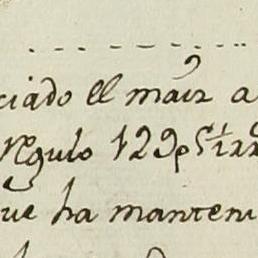 ciado el maiz a
regulo 129 p s 1/2 rr
que ha manteni